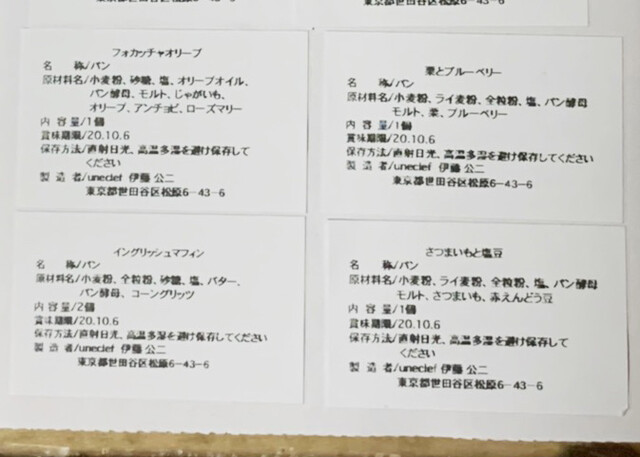 東京都世田谷区松原6-43-6
フォカッチャオリーブ
名 称/パン
原材料名/小麦粉、砂糖、塩、オリーブオイル、
パン酵母、モルト、じゃがいも、
オリーブ、アンチョビ、ローズマリー
内 容 量/1個
賞味期限/20.10.6
保存方法/直射日光、高温多湿を避け保存して
ください
製 造 者/uneclef 伊藤 公二
東京都世田谷区松原6-43-6
栗とブルーベリー
名 称/パン
原材料名/小麦粉、ライ麦粉、全粒粉、塩、パン酵母
モルト、栗、ブルーベリー
内 容 量/1個
賞味期限/20.10.6
保存方法/直射日光、高温多湿を避け保存して
ください
製 造 者/uneclef 伊藤 公二
東京都世田谷区松原6-43-6
イングリッシュマフィン
名 称/パン
原材料名/小麦粉、全粒粉、砂糖、塩、バター、
パン酵母、コーングリッツ
内 容 量/2個
賞味期限/20.10.6
保存方法/直射日光、高温多湿を避け保存してください
製 造 者/uneclef 伊藤 公二
東京都世田谷区松原6-43-6
さつまいもと塩豆
名 称/パン
原材料名/小麦粉、ライ麦粉、全粒粉、塩、パン酵母
モルト、さつまいも、赤えんどう豆
内 容 量/1個
賞味期限/20.10.6
保存方法/直射日光、高温多湿を避け保存して
ください
製 造 者/uneclef 伊藤 公二
東京都世田谷区松原6-43-6